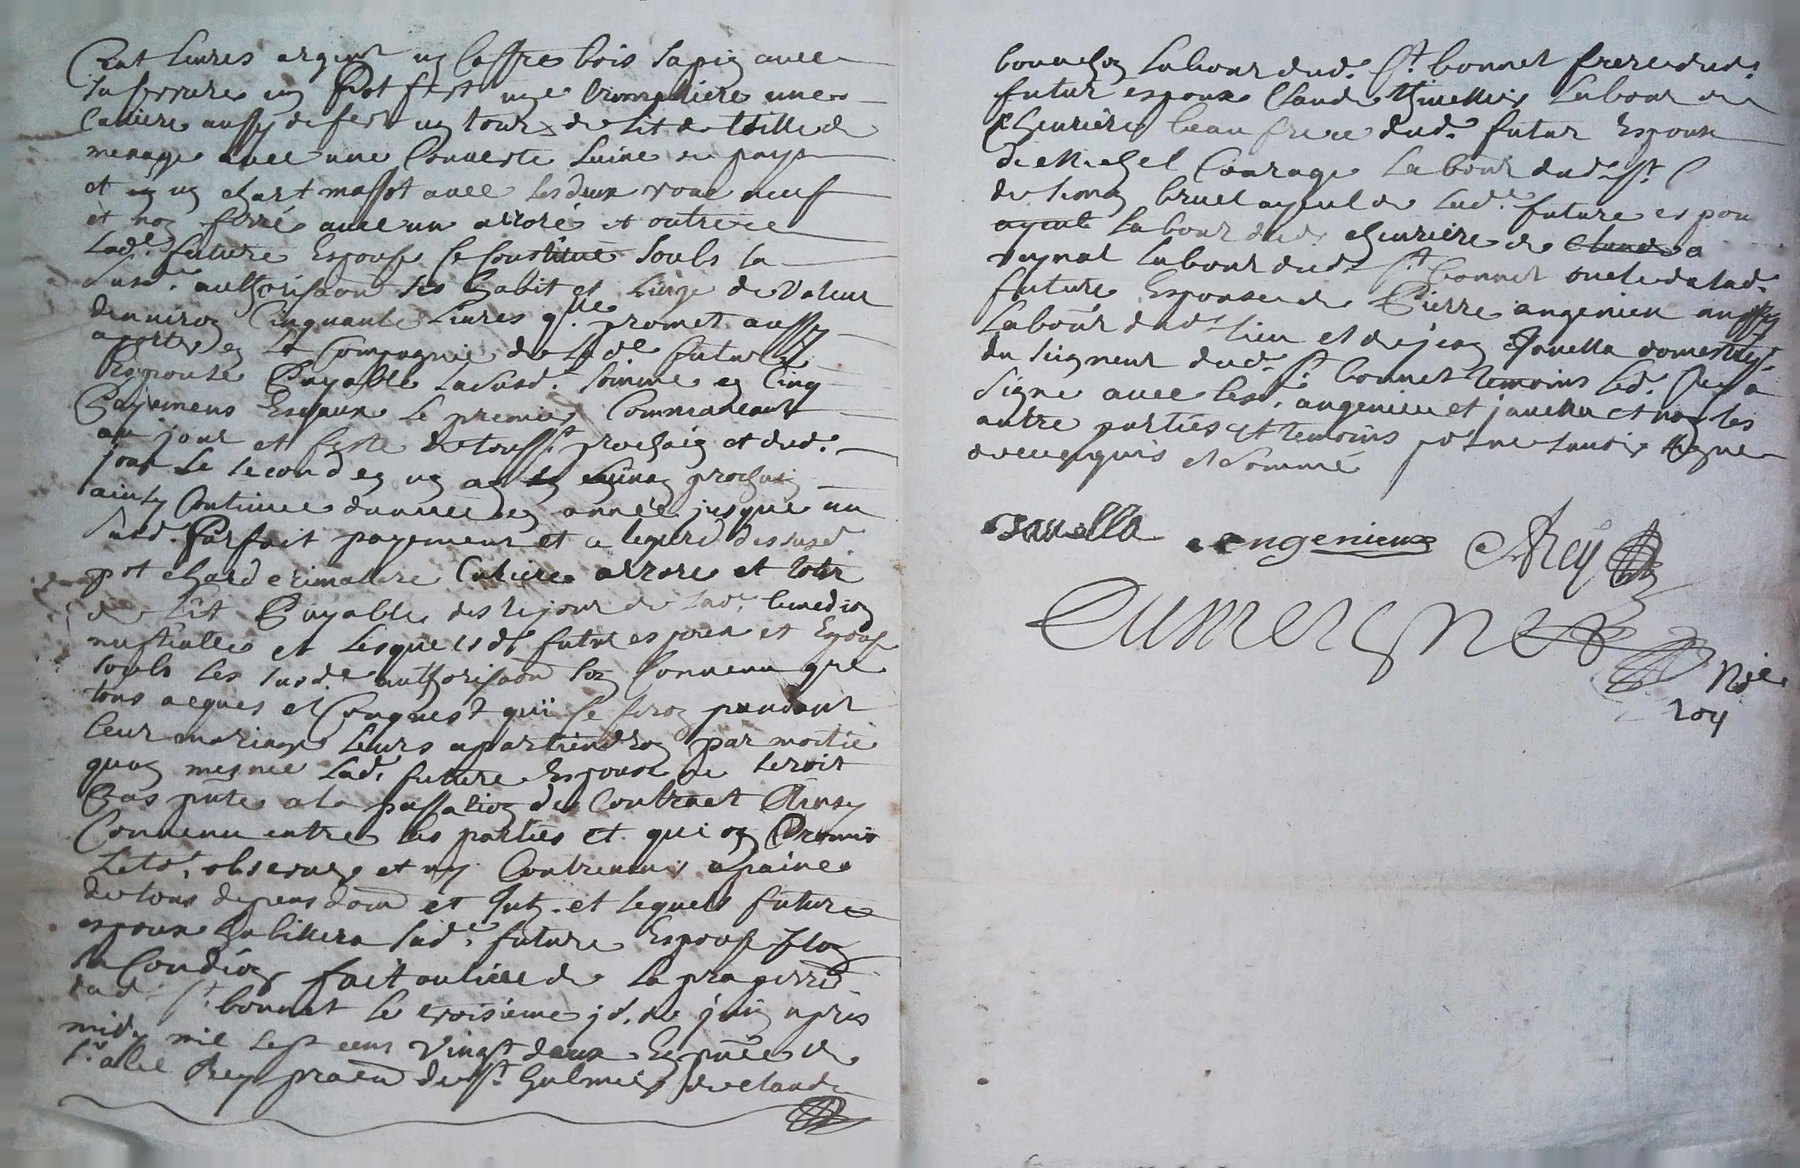 Cent livres argent un Coffre bois sapin avec
sa serrure un Pot fert une Crimaliere une
Cuiliere aussy de fer un tour de Lit de toille de
menage avec une Couverte Laine du pays
et un chart massot avec les deux roue neuf
et non ferré avec un arroré et outre ce
Lad.e future Espouse se Constitue soubs la
susd.e authorisaon ses habit et Linge de Valeur
denviron Cinquante Livres q.lle promet aussy
aporter en la Compagnie de Lad.e future
Payable Lasusd.e somme en Cinq
Payemens Esgaux Le premier Commanceant
au jour et feste de touss.t prochain et dud.
jour Le second en un an prochain
ainsy Continuer dannée en année jusque au
susd. Parfait payement et a legard des susd
pot chard crimallere Culiere arrore et tour
de Lit Payable des le jour de Lad. benedion
nuptialle et Lesquels d. futur espoux et Espouse
soubs les susd.e authorisaon son Convenu que
tous acques et Conquest qui se feron pendant
leur mariage leurs apartiendron par moitié
quoy mesme Lad. future Espouse ne seroit
Pas pnte a la passation des Contract Ainsy
Convenu entre les parties et qui on Promis
observer et ny Contrevenir a paine
de tous depens dom et Int. et lequel future
espoux habillera Lad.e future Espouse selon
sa Condion fait au lieu de La
aud. St. bonnet le troisieme jo. de juin apres
midy mil sept cens Vingt deux En pnce de
s.r abel Rey praten de St. Galmier de claude
labour dud. St. bonnet frere dud.
futur espoux Claude Labour de
Chevrière beau frere dud. futur Espoux
de Michel Courage Labour dud. St. b
de simon bruel ayeul de Lad.e future espou
ayeul Labour dud. chevrière de Claude a
reynat Labour dud. St. bonnet oncle de lad.
future Espouse de Pierre angenieu aussy
Labour dud. Lieu et de jean Javella domestiq.
du seigneur dud. St. bonnet temoins Led. Rey a
signe avec les. angenieu et javella et non les
autre parties et temoins pr ne savoir signer
de ce enquis et sommé
Javella angenieux ARey
Dumeigner
Nore
roy